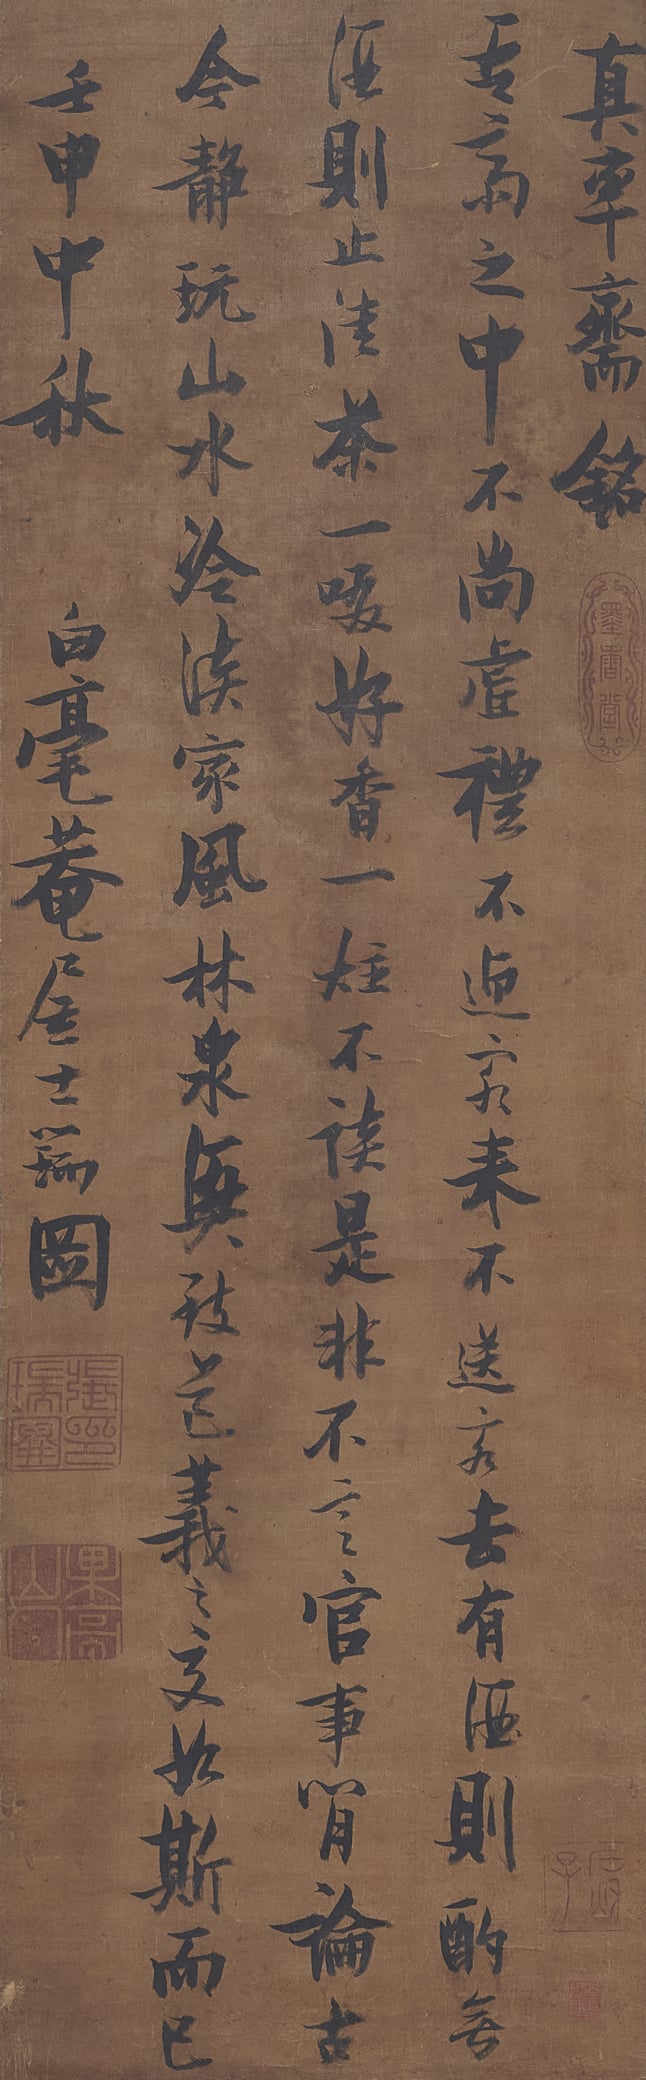 真率齋銘
吾齋之中不尚虛禮不迎客來不送客去有酒則酌無
酒則止清茶一啜好香一炷不談是非不言官事閒論古
今靜玩山水冷淡家風林泉興致道義之交如斯而已
壬申中秋 白毫菴居士瑞圖
墨香堂
張瑞圖印
果亭山人